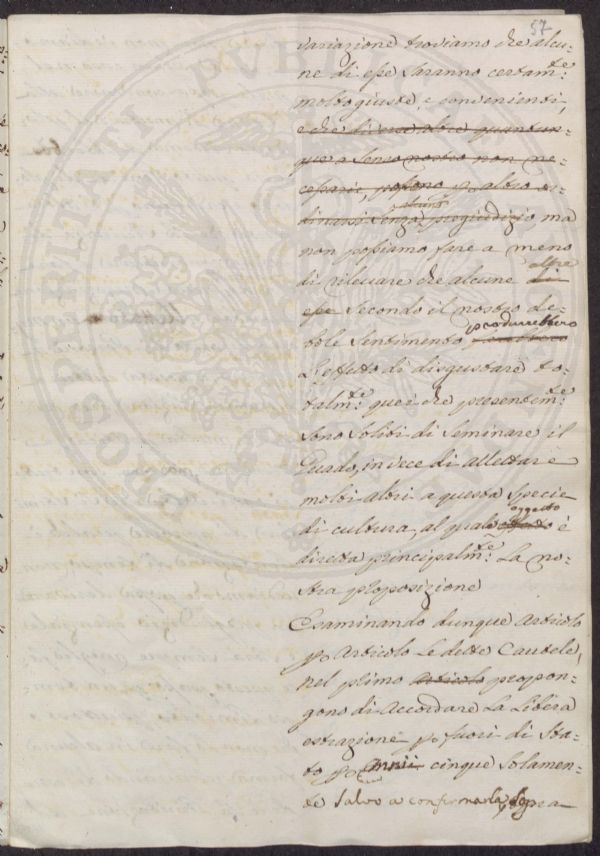 57
variazione troviamo che alcu-
ne di esse saranno certam.te
molto giuste, e convenienti,
e che diverse altre quantun-
que a senso nostro non ne-
cessarie, possono p altro or-
dinarsi senza alcuno pregiudizio, ma
non possiamo fare a meno
di rilevare che alcune di altre
esse secondo il nostro de-
bole sentimento produrrebbero
L'effetto di disgustare to-
talm.te quei che presentem.te
sono soliti di seminare il
Guado, in vece di allettare
molti altri a questa specie
di cultura, al quale oggetto è
diretta principalm.te La no-
stra proposizione
Esaminando dunque articolo
p Articolo Le dette Cautele,
nel primo articolo propon-
gono di accordare La Libera
estrazione p fuori di Sta-
to p anni cinque solamen-
te salvo a confirmarla
PROSPERITATI PVBLICAE